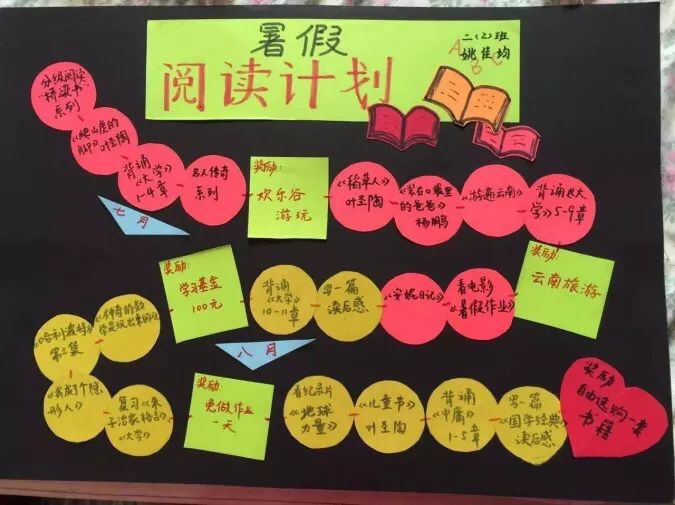 暑假
阅读计划
二(2)班
姚佳均
A B C
分级阅读
"桥梁书"
系列
《爬山虎的
脚》叶圣陶
背诵
《大学》
1-4章
名人传奇
系列
七月
奖励:
欢乐谷
游玩
《稻草人》
叶圣陶
《装在口袋里
的爸爸》
杨鹏
《游遍云南》
背诵《大
学》5-9章
奖励:
云南旅游
看电影
《暑假作业》
《安妮日记》
写一篇
读后感
背诵
《大学》
10-11章
奖励:
学习基金
100元
八月
《神奇的数
学是玩出来的》
《哈利波特》
第三集
《我成了个隐
形人》
复习《朱
子治家格言》
《大学》
奖励:
免做作业
一天
看纪录片
《地球
力量》
《儿童节》
叶圣陶
背诵
《中庸》
1-5章
写一篇
《国学经典》
读后感
奖励
自由选购一套
书籍